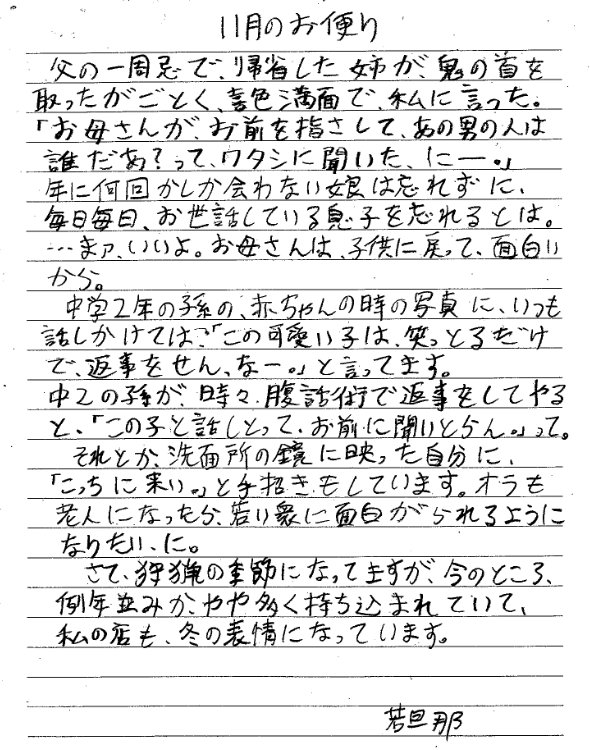 11月のお便り
父の一周忌で、帰省した姉が、鬼の首を
取ったがごとく、喜色満面で、私に言った。
「お母さんが、お前を指さして、あの男の人は
誰だあ?って、ワタシに聞いた、にー。」
年に何回かしか会わない娘は忘れずに、
毎日毎日、お世話している息子を忘れるとは。
…まァ、いいよ。お母さんは、子供に戻って、面白い
から。
中学2年の孫の、赤ちゃんの時の写真に、いつも
話しかけては、「この可愛い子は、笑っとるだけ
で、返事をせん、なー。」と言ってます。
中2の孫が、時々、腹話術で返事をしてやる
と、「この子と話しとって、お前に聞いとらん。」って。
それとか、洗面所の鏡に映った自分に、
「こっちに来い。」と手招きもしています。オラも
老人になったら、若い衆に面白がられるように
なりたい、に。
さて、狩猟の季節になってますが、今のところ、
例年並みか、やや多く持ち込まれていて、
私の店も、冬の表情になっています。
若旦那